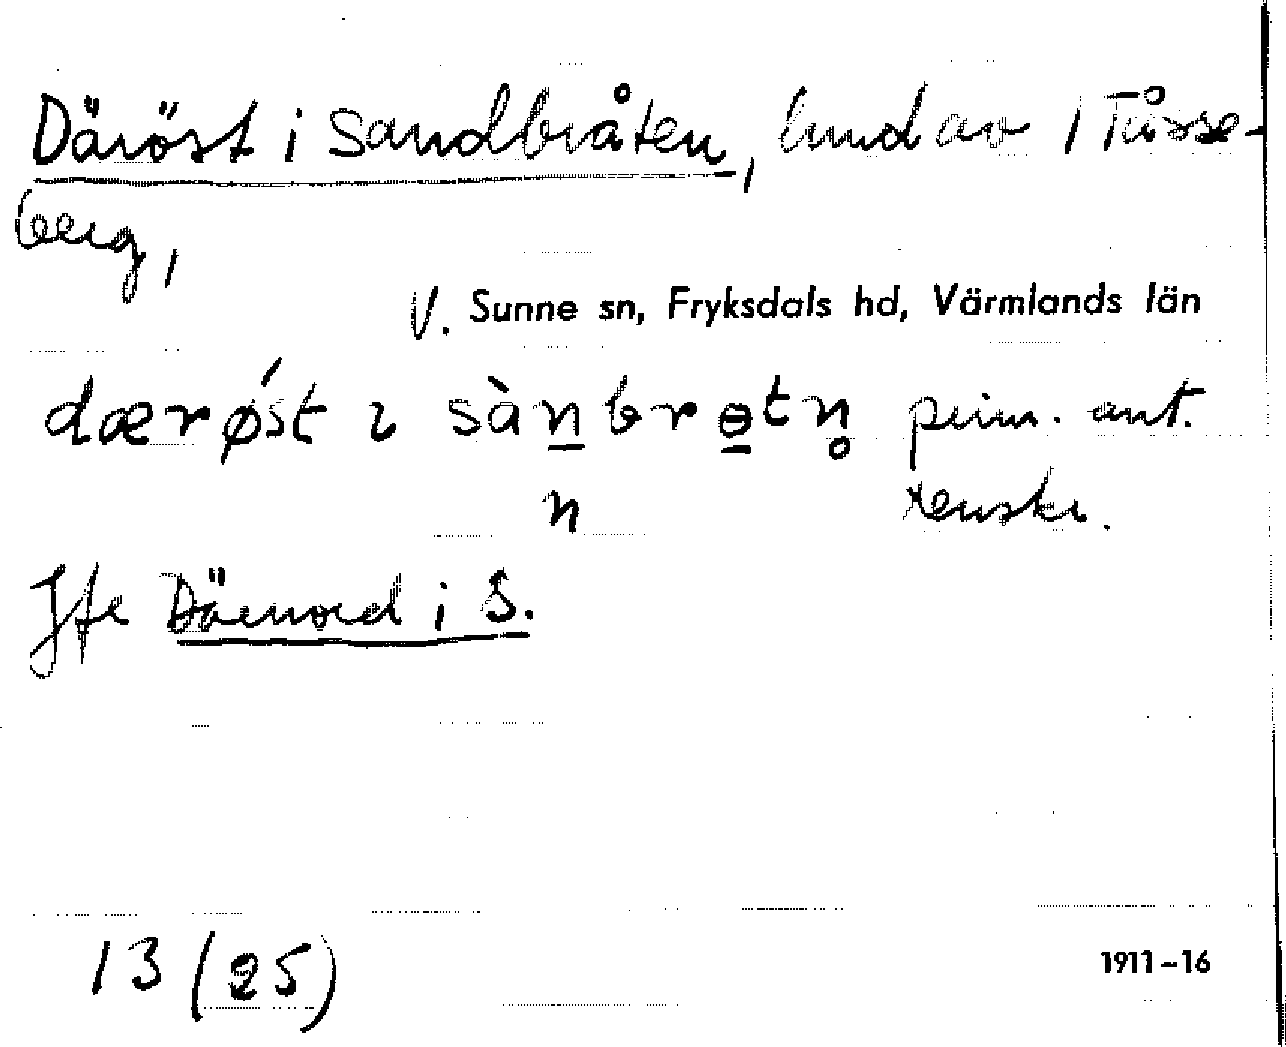 Däröst i Sandbråten, lund av 1 Tåsse-
berg,
V. Sunne sn, Fryksdals hd, Värmlands län
dærǿst ɩ sàn̲brɵ̲tn̥ prim. ant.
n
Jfr Därnord i S.
13 (25)
1911-16